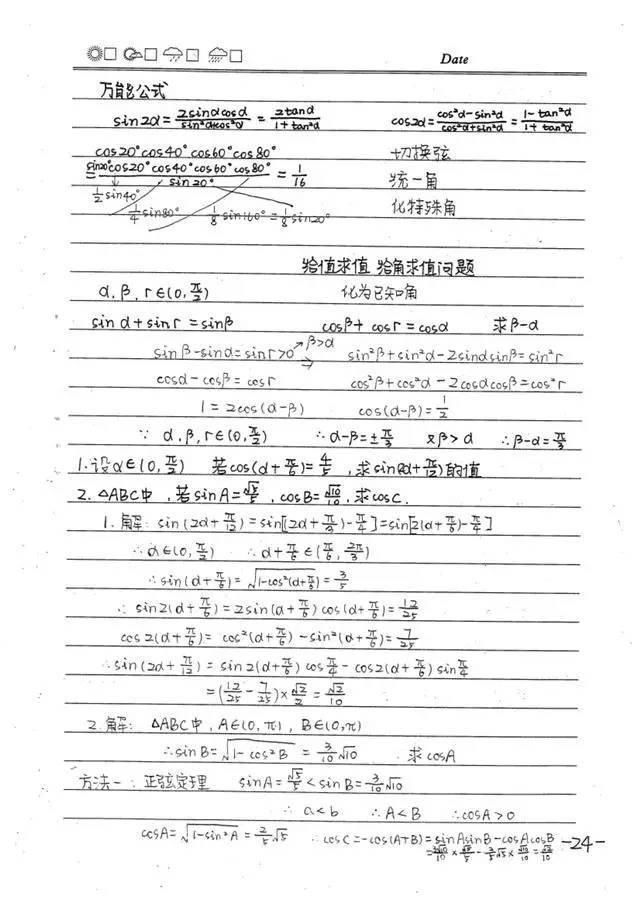 Date
万能公式
sin2α = 2sinαcosα/sin²αcos²α = 2tanα/1+tan²α cos2α = cos²α-sin²α/cos²α+sin²α = 1-tan²α/1+tan²α
cos20°cos40°cos60°cos80° 切换弦
= sin20°cos20°cos40°cos60°cos80°/sin20° = 1/16 统一角
1/2 sin40° 化特殊角
1/4 sin80° 1/8 sin160° = 1/8 sin20°
给值求值 给角求值问题
α, β, r∈(0, π/2) 化为已知角
sinα + sinr = sinβ cosβ + cosr = cosα 求β-α
sinβ - sinα = sinr > 0 → β>α ⇒ sin²β + sin²α - 2sinαsinβ = sin²r
cosα - cosβ = cosr cos²β + cos²α - 2cosαcosβ = cos²r
1 = 2cos(α-β) cos(α-β) = 1/2
∵ α, β, r∈(0, π/2) ∴ α-β = ±π/3 又β>α ∴ β-α = π/3
1. 设α∈(0, π/2) 若cos(α+π/6) = 4/5, 求sin(2α+π/12)的值
2. △ABC中, 若sinA = √5/5, cosB = √10/10, 求cosC.
1. 解: sin(2α+π/12) = sin[(2α+π/3)-π/4] = sin[2(α+π/6)-π/4]
∵ α∈(0, π/2) ∴ α+π/6∈(π/6, 2π/3)
∴ sin(α+π/6) = √1-cos²(α+π/6) = 3/5
∴ sin2(α+π/6) = 2sin(α+π/6)cos(α+π/6) = 12/25
cos2(α+π/6) = cos²(α+π/6) - sin²(α+π/6) = 7/25
∴ sin(2α+π/12) = sin2(α+π/6)cosπ/4 - cos2(α+π/6)sinπ/4
= (12/25 - 7/25)×√2/2 = √2/10
2. 解: △ABC中, A∈(0, π), B∈(0, π)
∴ sinB = √1-cos²B = 3/10√10. 求cosA
方法一: 正弦定理 sinA = √5/5 < sinB = 3/10√10
∴ a<b ∴ A<B ∴ cosA>0
cosA = √1-sin²A = 2/5√5 ∴ cosC = -cos(A+B) = sinAsinB - cosAcosB
= 3√10/10 × √5/5 - 2/5√5 × √10/10 = √2/10
-24-